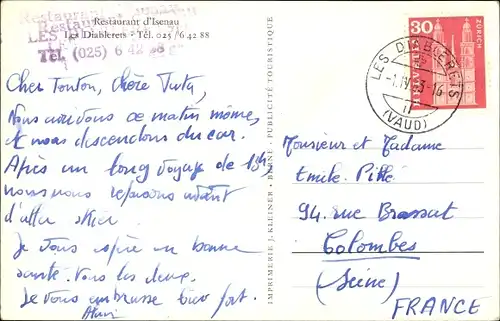 Restaurant d'Isenau
Les Diablerets · Tél. 025 / 6 42 88
Restaurant
LES
Tél. (025) 6 42 88
Cher Tonton, Chère Tata,
Nous arrivons ce matin même,
et nous descendons du car.
Après un long voyage de 13h,
nous nous reposons avant
d'aller skier
Je vous espère en bonne
santé. Vous les deux.
Je vous embrasse bien fort.
Alain
IMPRIMERIE J. KLEINER · BIENNE · PUBLICITÉ TOURISTIQUE
30
HELVETIA
ZURICH
LES DIABLERETS
-1.IV.63-16
(VAUD)
Monsieur et Madame
Emile
94, rue Brassat
Colombes
(Seine)
FRANCE